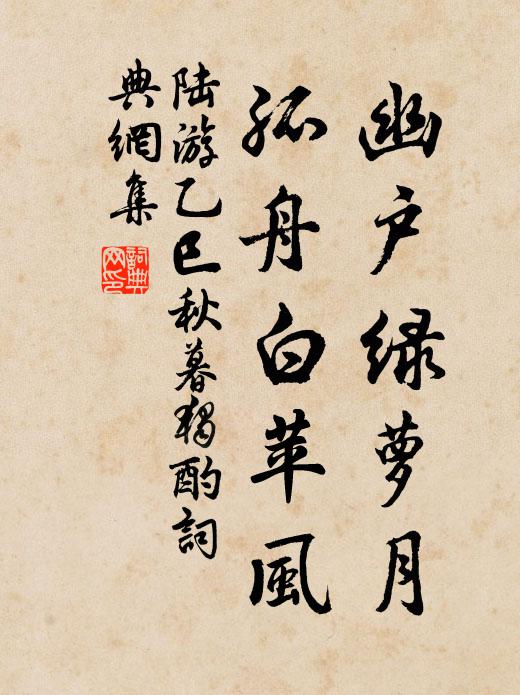 幽户绿萝月
孤舟白苹風
陆游乙巳秋暮獨酌詞
典網集
詞典網印